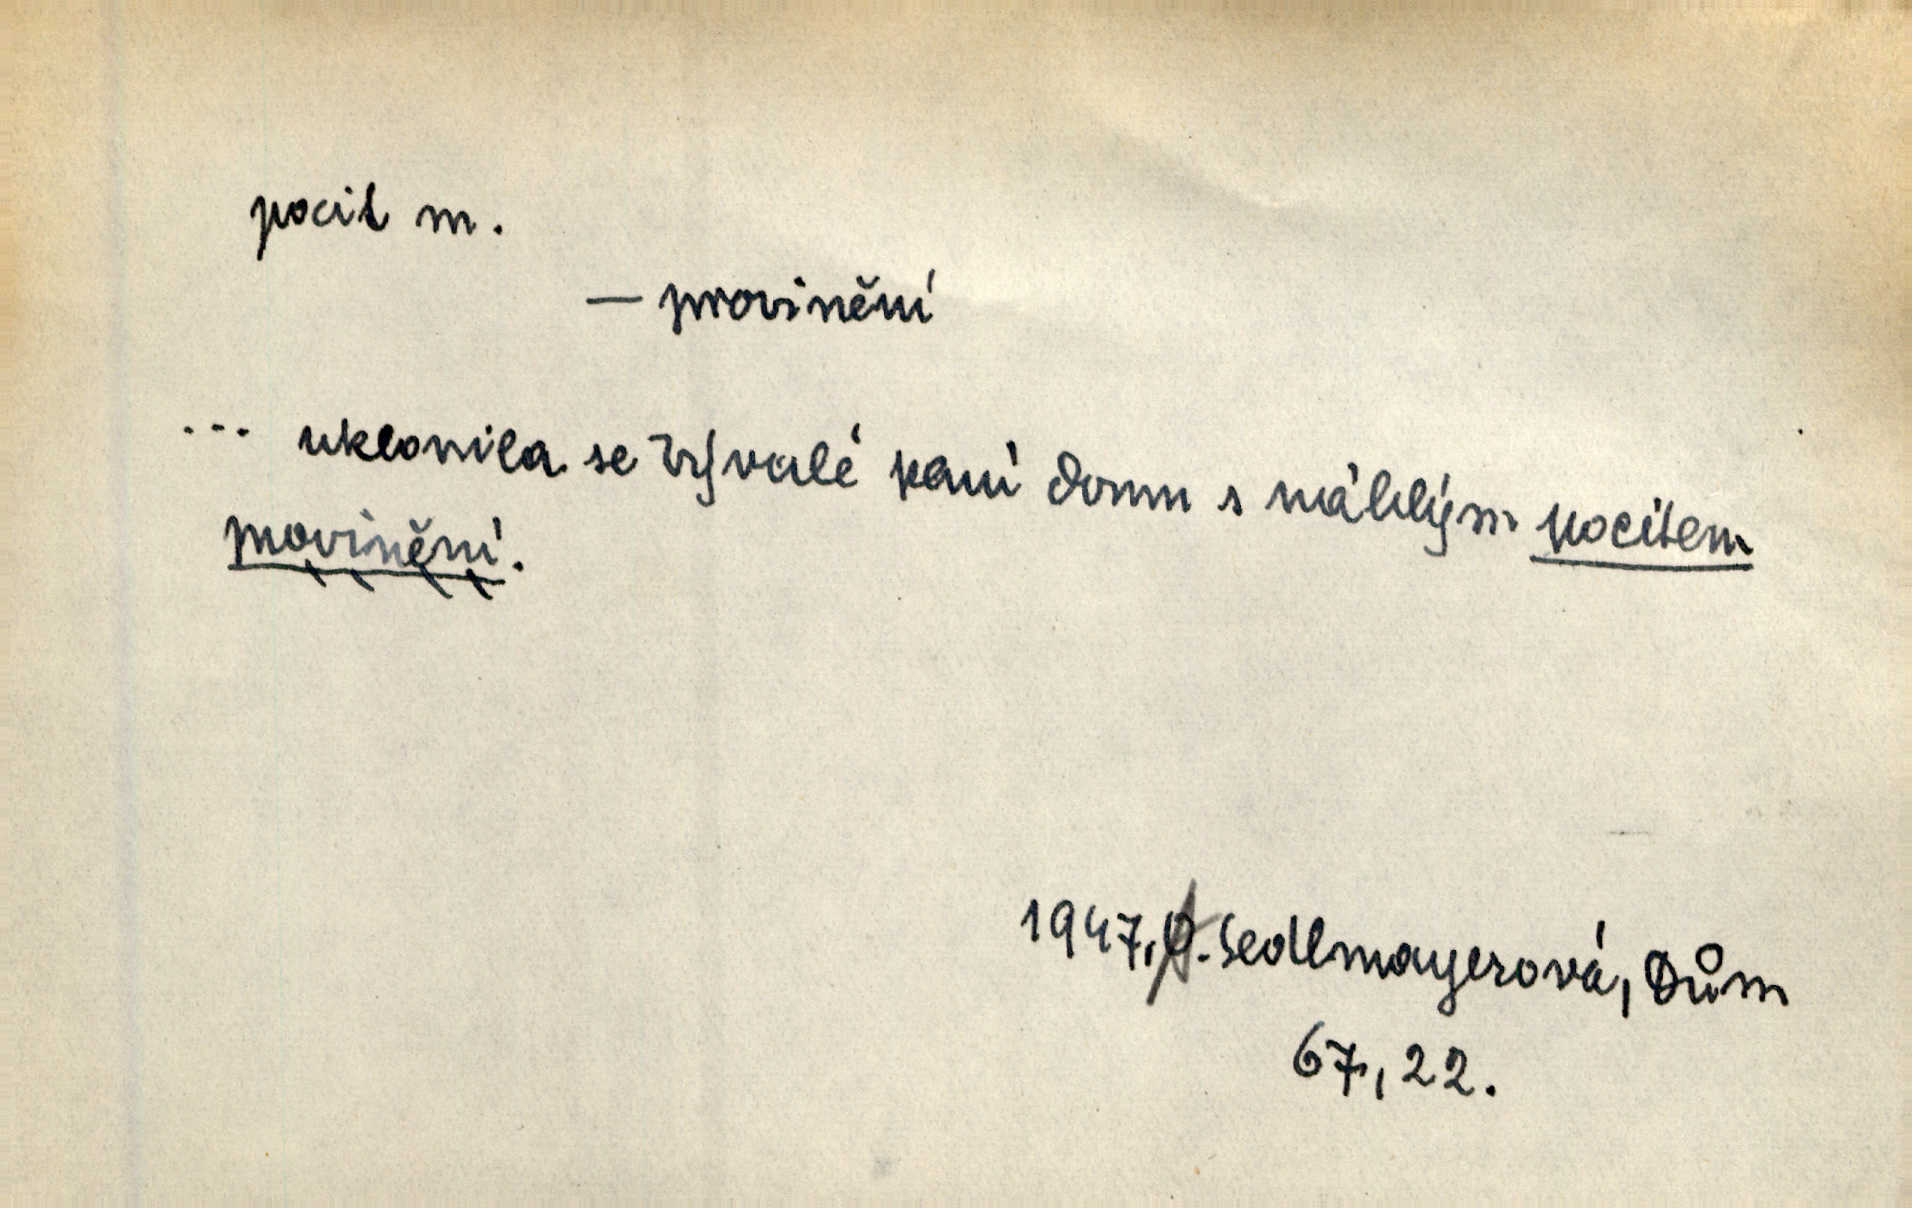 pocit m.
— provinění
... uklonila se bývalé paní domu s náhlým pocitem
provinění.
1947, A. Sedlmayerová, Dům
67, 22.